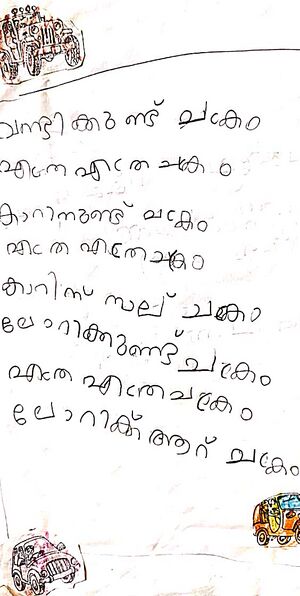 വണ്ടിക്കുണ്ട് ചക്രം
എത്ര എത്ര ചക്രം
കാറിനുണ്ട് ചക്രം
എത്ര എത്ര ചക്രം
കാറിന് നാല് ചക്രം
ലോറിക്കുണ്ട് ചക്രം
എത്ര എത്ര ചക്രം
ലോറിക്ക് ആറ് ചക്രം